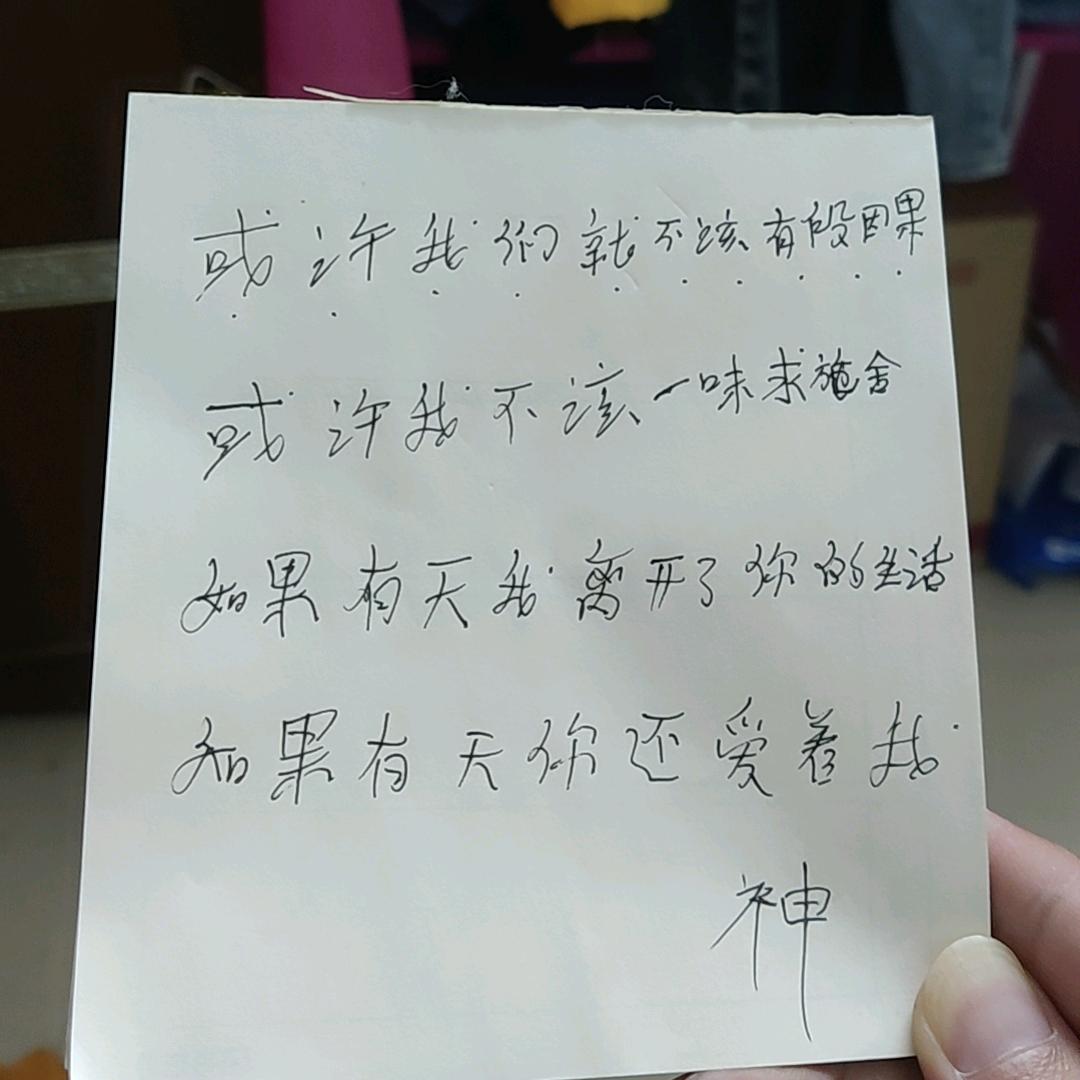 或许我们就不该有段因果
或许我不该一味求施舍
如果有天我离开了你的生活
如果有天你还爱着我
神